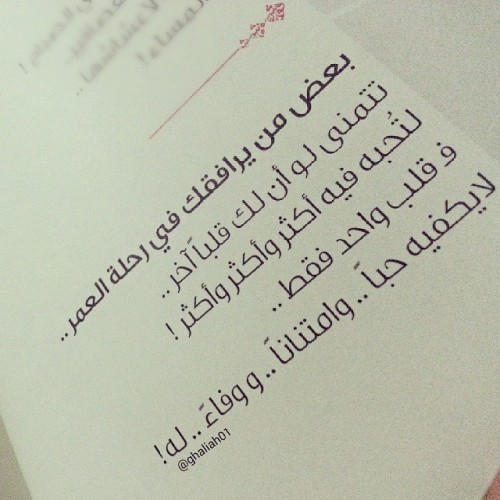 بعض من يرافقك في رحلة العمر..
تتمنى لو أن لك قلباً آخر..
لتُحبه فيه أكثر وأكثر وأكثر!
ف قلب واحد فقط..
لايكفيه حباً.. وامتناناً.. و وفاءً.. له!
@ghaliah01